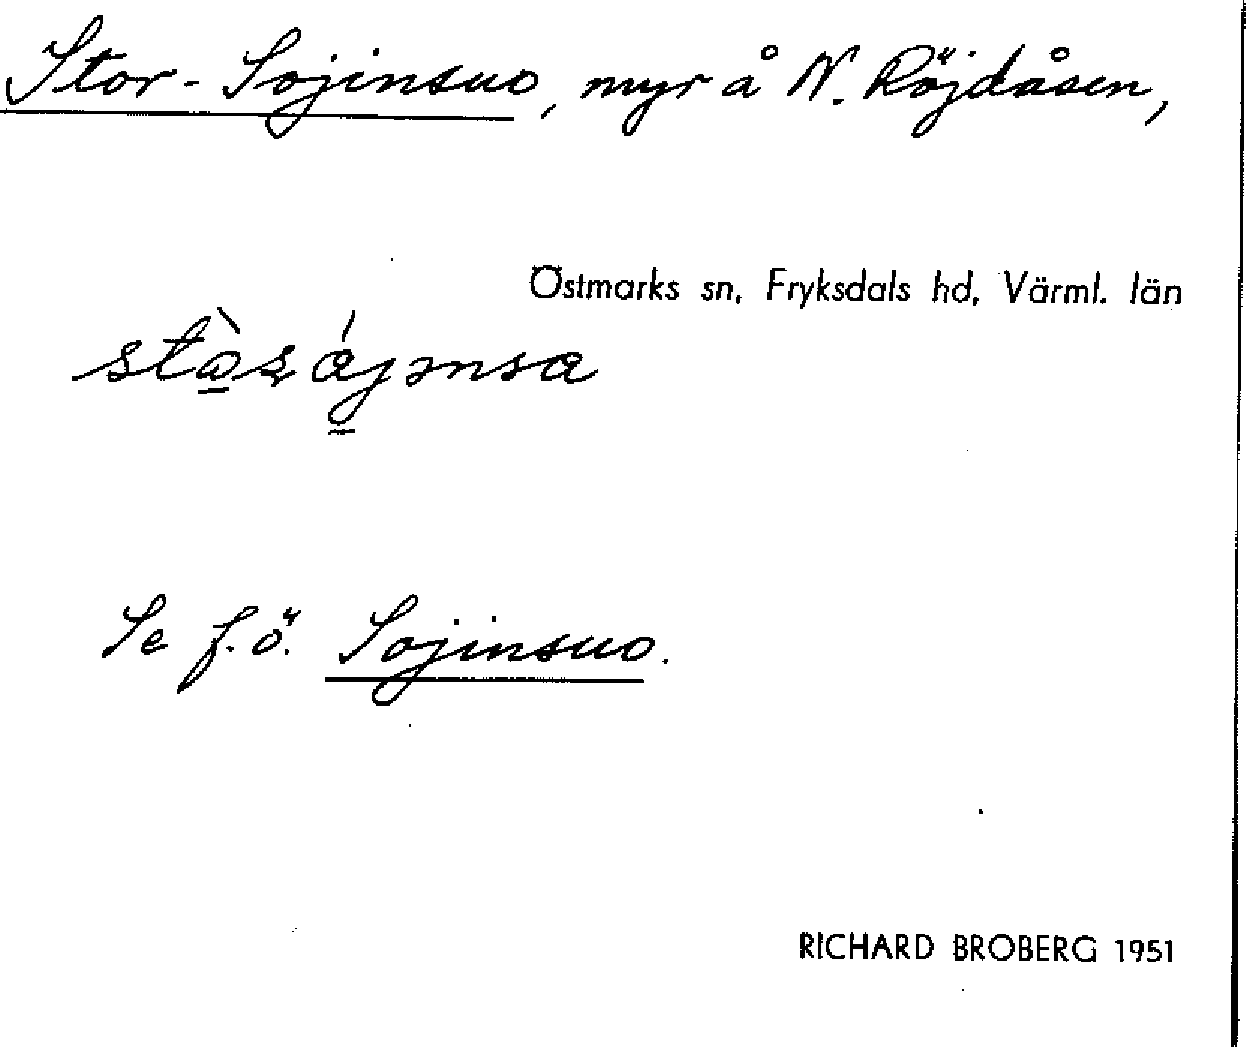 Stor-Sojinsuo, myr å N. Röjdåsen,
Östmarks sn, Fryksdals hd, Värml. län
Se f.ö. Sojinsuo.
RICHARD BROBERG 1951